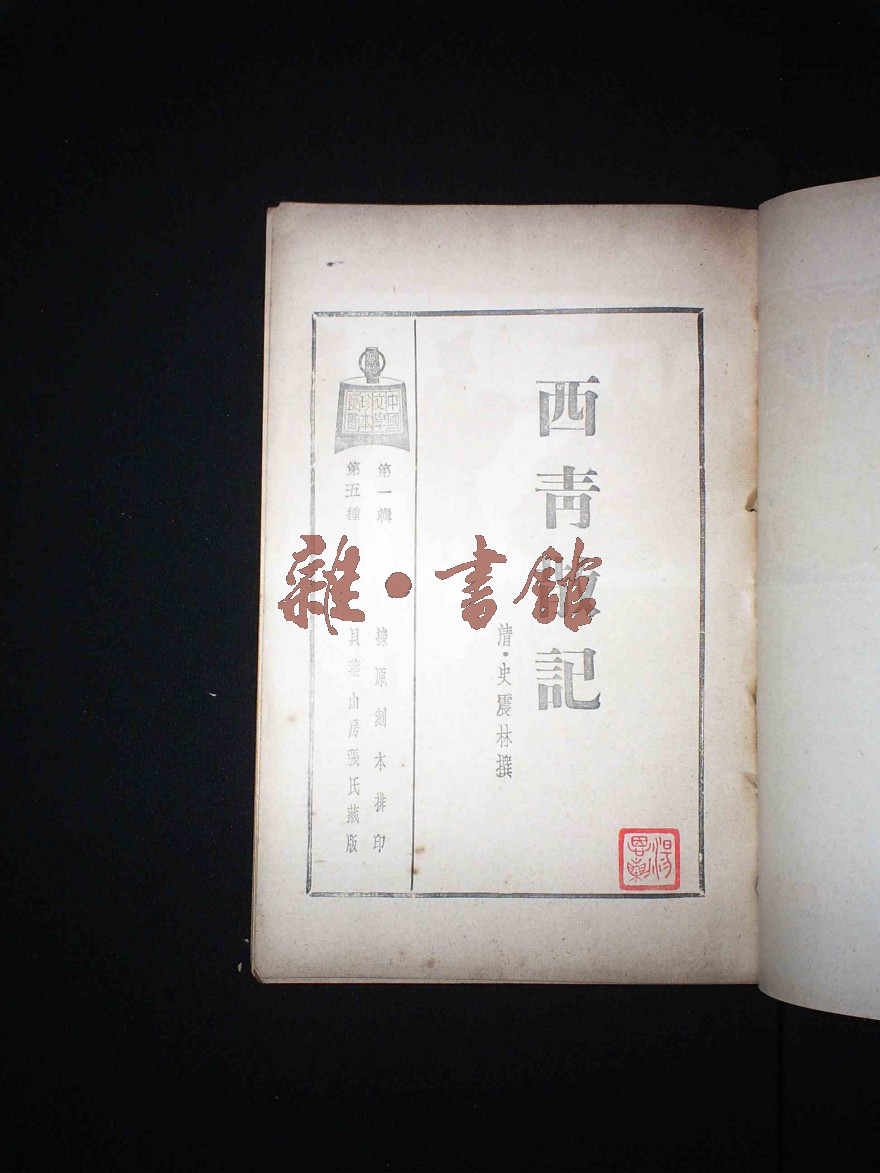 西青散記
清·史震林撰
中國文學珍本叢書
第一輯
第五種
據原刻本排印
貝葉山房張氏藏版
雜·書館